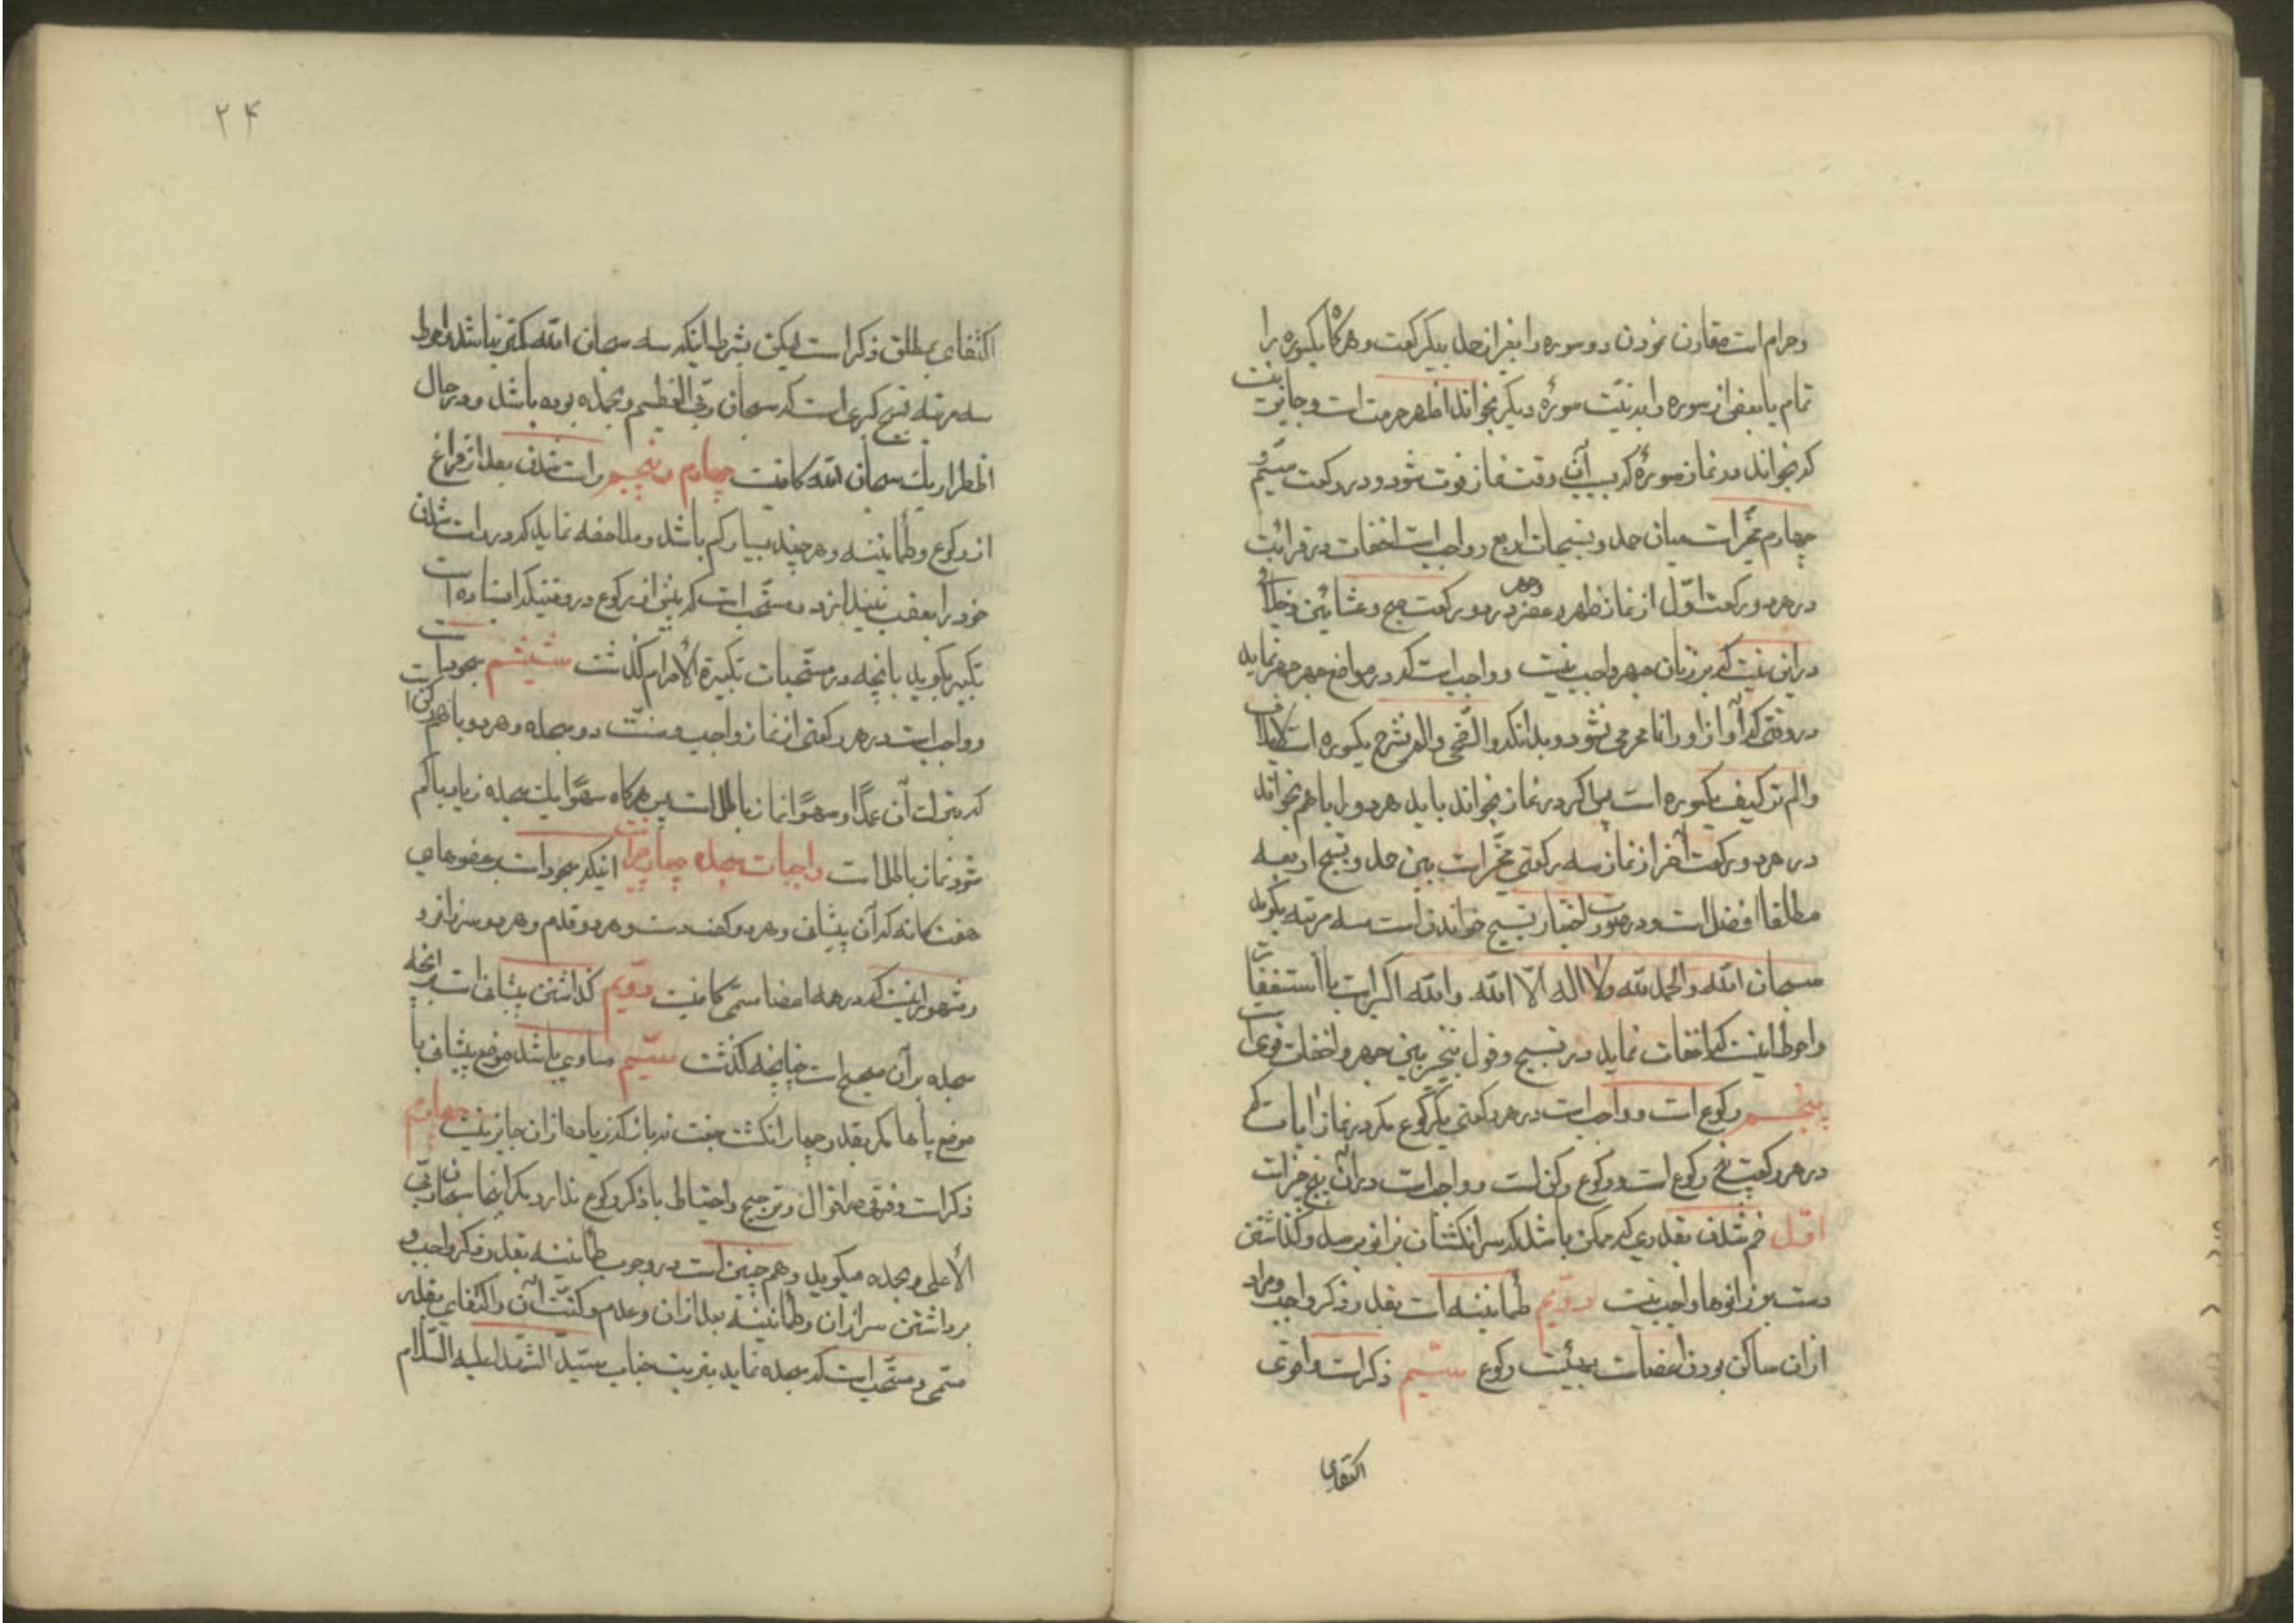 وحرام است مقارن نمودن دو سوره را بغیر از حمد بیکرکعت و هرگاه یکسوره را
تمام یا بعضی از سوره را بدنیّت سورهٔ دیگر بخواند اظهر حرمت است و جایز نیست
که بخواند در نماز سورهٔ که بسبب آن وقت نماز فوت شود و در رکعت سیّم و
چهارم مخیّر است میان حمد و تسبیحات اربع و واجب است اخفات در قرائت
در هر دو رکعت اوّل از نماز ظهر و عصر و جهر در دو رکعت صبح و عشائین و خلافی
در این نیست که بر زنان جهر واجب نیست و واجب است که در مواضع جهر جهر نماید
در وقتی که آواز او را نا محرمی نشود و بدانکه والضّحی والم نشرح یکسوره است لایلاف
والم تر کیف یکسوره است پس اگر در نماز بخواند باید هر دو را با هم بخواند
در هر دو رکعت آخر از نماز سه رکعتی مخیّر است بین حمد و تسبیح اربعه
مطلقا افضل است و در صورت اختیار تسبیح خواندن است سه مرتبه بگوید
سبحان الله والحمد لله ولا اله الّا الله والله اکبر است با استغفار
واحوط اینست که اخفات نماید در تسبیح و قول بتخییر بین جهر و اخفات قوی است
پنجم رکوع است و واجب است در هر رکعتی یکرکوع مگر در نماز ایات که
در هر رکعت پنج رکوع است و رکوع رکن است و واجب است در آن پنج چیز است
اوّل خم شدن بقدری که ممکن باشد که سر انگشتان بزانو برسد و گذاشتن
دست بر زانوها واجب نیست دویّم طمأنینه است بقدر ذکر واجب و مراد
از ان ساکن بودن اعضاست بهیئت رکوع سیّم ذکر است و اقوی
اکتفای
۲۴
اکتفای بمطلق ذکر است لیکن بشرط اینکه سه سبحان الله کمتر نباشد و احوط
سه مرتبه تسبیح کبری است که سبحان ربّی العظیم وبحمده بوده باشد و در حال
اضطرار یک سبحان الله کافیست چهارم و پنجم راست شدن بعد از فراغ
از رکوع و طمأنینه و هر چند بسیار کم باشد و ملاحظه نماید که در راست شدن
خود را بعقب نیندازد و مستّحب است که پیش از رکوع در وقتیکه ایستاده است
تکبیر بگوید بانچه در مستّحبات تکبیرة الأحرام گذشت ششم سجود است
و واجب است در هر رکعتی از نماز واجب و سنّت دو سجده و هر دو با هم رکن است
که بترک آن عمدًا و سهوًا نماز باطل است پس هرگاه سهوًا یک سجده زیاد یا کم
شود نماز باطل است واجبات سجده چهار چیز است اینکه سجود است بر عضوهای
هفتگانه که آن پیشانی و هر دو کف دست و هر دو قدم و هر دو سر زانو
و مشهور اینست که در همه اعضا مسمّی کافیست دویّم گذاشتن پیشانی است بر انچه
سجده بر آن صحیح است چنانچه گذشت سیّم مساوی باشد موضع پیشانی با
موضع پاها مگر بقدر چهار انگشت جفت نه باز که زیاده از ان جایز نیست چهارم
ذکر است و فرقی در اقوال و ترجیح و احتیاط با ذکر رکوع ندارد مگر اینجا سبحان ربّی
الأعلی وبحمده میگوید و هم چنین است در وجوب طمأنینه بقدر ذکر واجب و
برداشتن سر از ان و طمأنینه بعد از ان و عدم رکنیّت آن و اکتفای بقدر
مسمّی و مستّحب است که سجده نماید بتربت جناب سیّد الشّهدا علیه السّلام